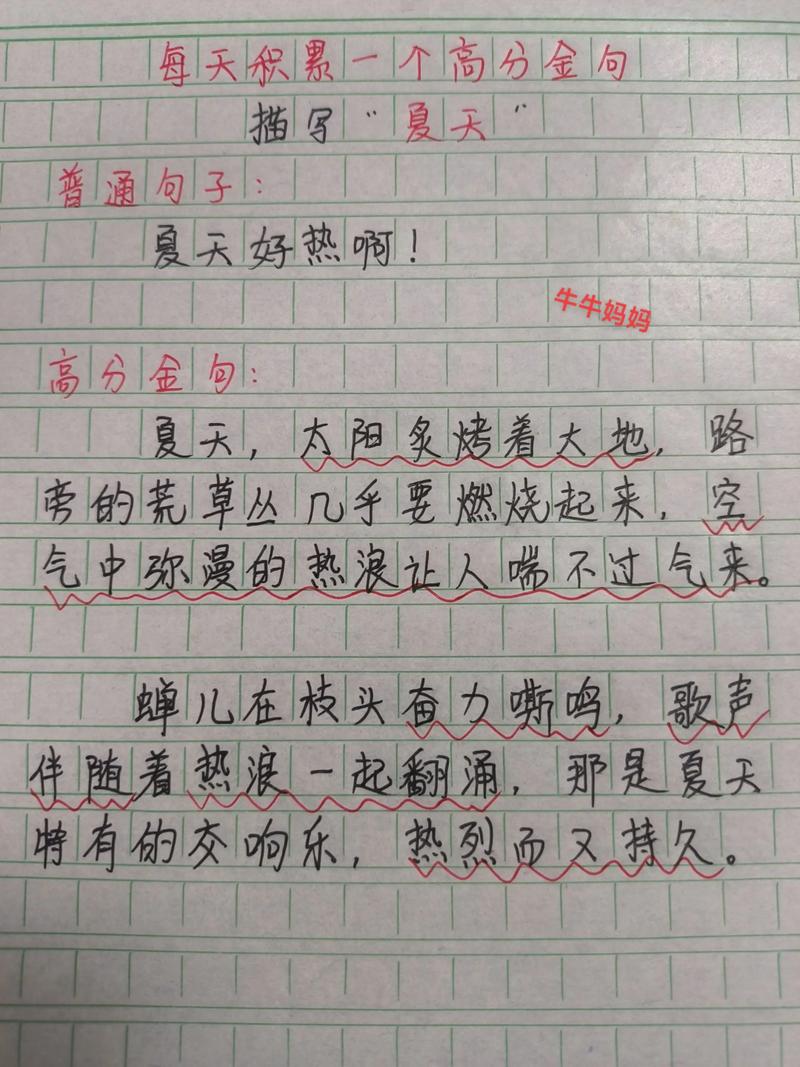 每天积累一个高分金句
描写“夏天”
普通句子：
夏天好热啊！
牛牛妈妈
高分金句：
夏天，太阳炙烤着大地，路
旁的荒草丛几乎要燃烧起来，空
气中弥漫的热浪让人喘不过气来。
蝉儿在枝头奋力嘶鸣，歌声
伴随着热浪一起翻涌，那是夏天
特有的交响乐，热烈而又持久。